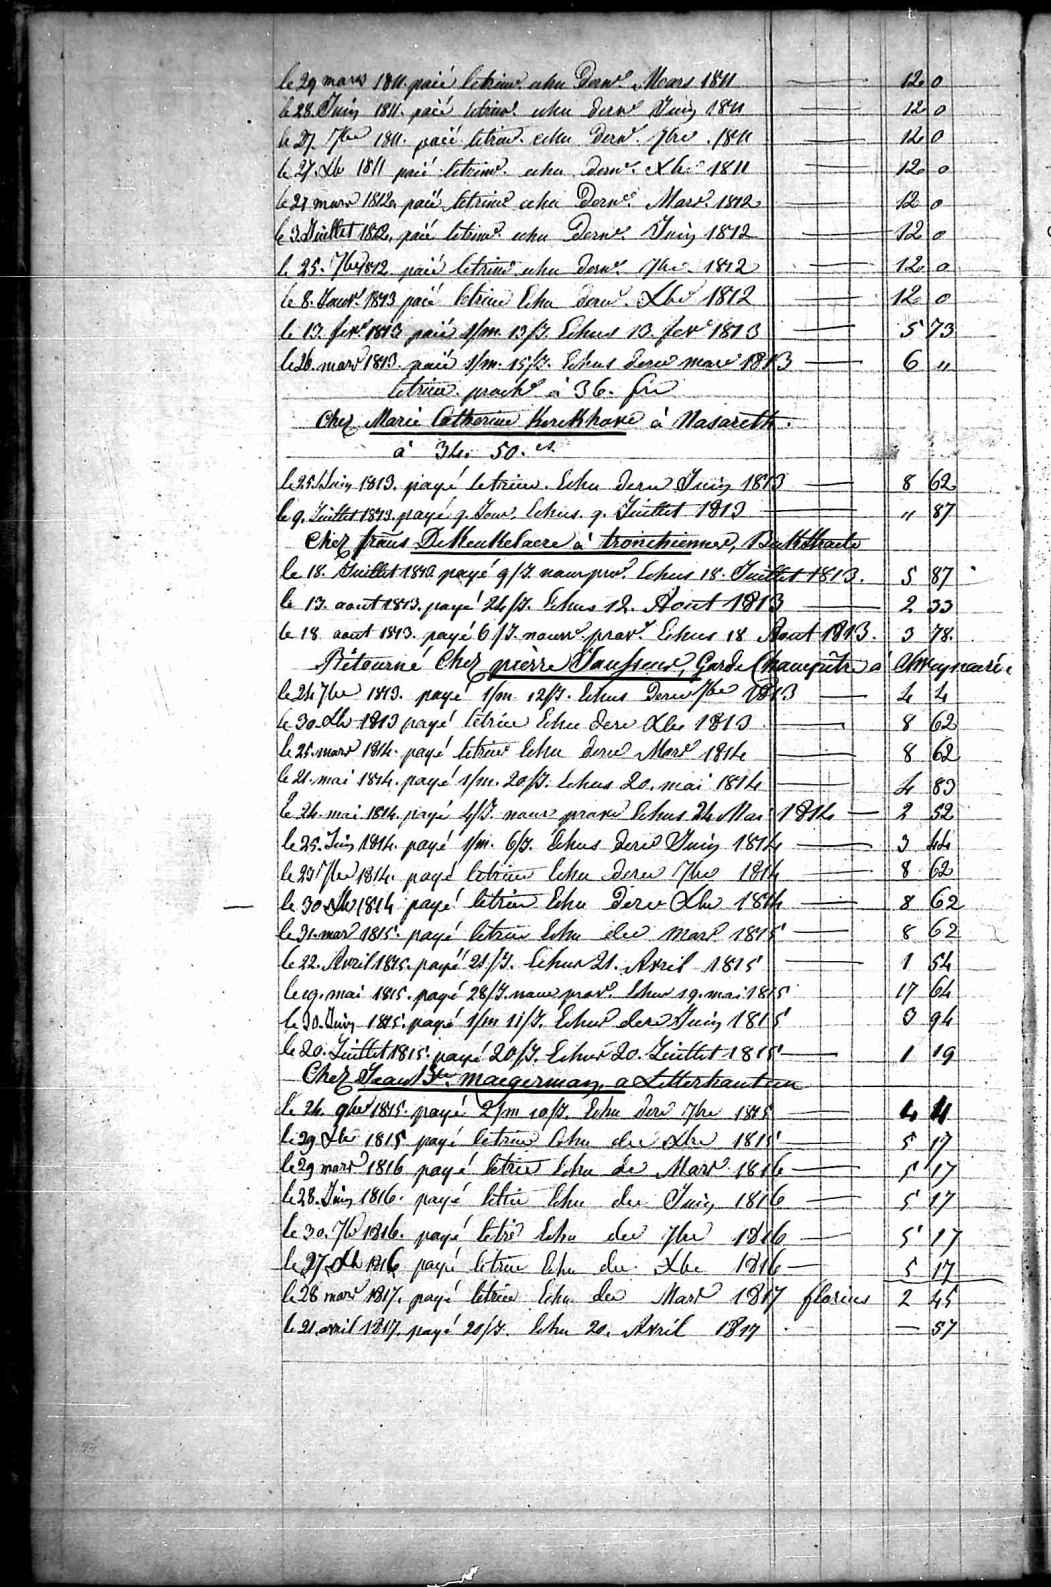 le 29 mars 1811. paié letrim.e echu Dern.r Mears 1811 — 12 0
le 28. Juin 1811. paié letrim.e echu dern.r Juin 1811 — 12 0
le 27. 7bre 1811. paié letrim. echu Dern.r 7bre. 1811 — 12 0
le 27. Xbr 1811 paié letrim.e echu dern.r Xbre 1811 — 12 0
le 27 mars 1812. paié letrim.e echu Dern.r Mars. 1812 — 12 0
le 3. Juillet 1812. paié letrim.e echu Dern.r Juin 1812 — 12 0
le 25. 7bre 1812 paié letrim.e echu dern.r 7bre 1812 — 12 0
le 8. Janv.r 1813 paié letrim Echu dern.r Xbre 1812 — 12 0
le 13. fevr 1813 paié 1/m. 13/J. Echus 13. fevr 1813 — 5 73
le 26. mars 1813. paié 1/m. 15/J. Echus dern mars 1813 — 6 "
letrim. proch.n à 36. frs
Chez Marie Catherine Kerckhove à Nasareth.
à 34. 50. cs.
le 25. Juin 1813. payé letrim. Echu dern Juin 1813 — 8 62
le 9. Juillet 1813. payé 9. Jour. Echus. 9. Juillet 1813 — " 87
Chez frans DeKeukelaere à tronchiennes,
le 18. Juillet 1813. payé 9/J. nour prov.r Echus 18. Juillet 1813. 5 87
le 13. aout 1813. payé 24/J. Echus 12. Aout 1813 — 2 33
le 18 aout 1813. payé 6/J. nour.e prov.r Echus 18 Aout 1813. 3 78
Rétourné Chez pièrre Janssens, Garde Champêtre à
le 24 7bre 1813. payé 1/m 12/J. Echus Dern 7bre 1813 — 4 4
le 30. Xbr 1813 payé letrim Echu dern Xbre 1813 — 8 62
le 25. mars 1814. payé letrim Echu dern Mars 1814 — 8 62
le 21. mai 1814. payé 1/m. 20/J. Echus 20. mai 1814 — 4 83
le 24. mai 1814. payé 4/J. nour prov Echus 24 Mai 1814 — 2 52
le 25. Juin 1814. payé 1/m. 6/J. Echus dern Juin 1814 — 3 44
le 23 7bre 1814. payé letrim Echu dern 7bre 1814 — 8 62
le 30 Xbr 1814 payé letrim Echu Dern Xbre 1814 — 8 62
le 31. mars 1815. payé letrim Echu der mars 1815 — 8 62
le 22. Avril 1815. payé 21/J. Echus 21. Avril 1815 — 1 54
le 19. mai 1815. payé 28/J. nour prov.r Echus 19. mai 1815 17 64
le 30. Juin 1815. payé 1/m 11/J. Echus dern Juin 1815 3 94
le 20. Juillet 1815. payé 20/J. Echus 20. Juillet 1815 — 1 19
Chez Jean Bte maegerman, a Letterhautem
le 24. 9bre 1815. payé 2/m 10/J. Echu dern 7bre 1815 — 4 4
le 29 Xbr 1815 payé letrim Echu der Xbre 1815 — 5 17
le 29 mars 1816 payé letrim Echu de Mars 1816 — 5 17
le 28. Juin 1816. payé letrim Echu der Juin 1816 — 5 17
le 30. 7bre 1816. payé letrim Echu der 7bre 1816 — 5 17
le 27 Xbr 1816 payé letrim Echu der. Xbre 1816 — 5 17
le 28 mars 1817. payé letrim Echu der Mars 1817 florins 2 45
le 21. avril 1817. payé 20/J. Echu 20. Avril 1817 . — 57